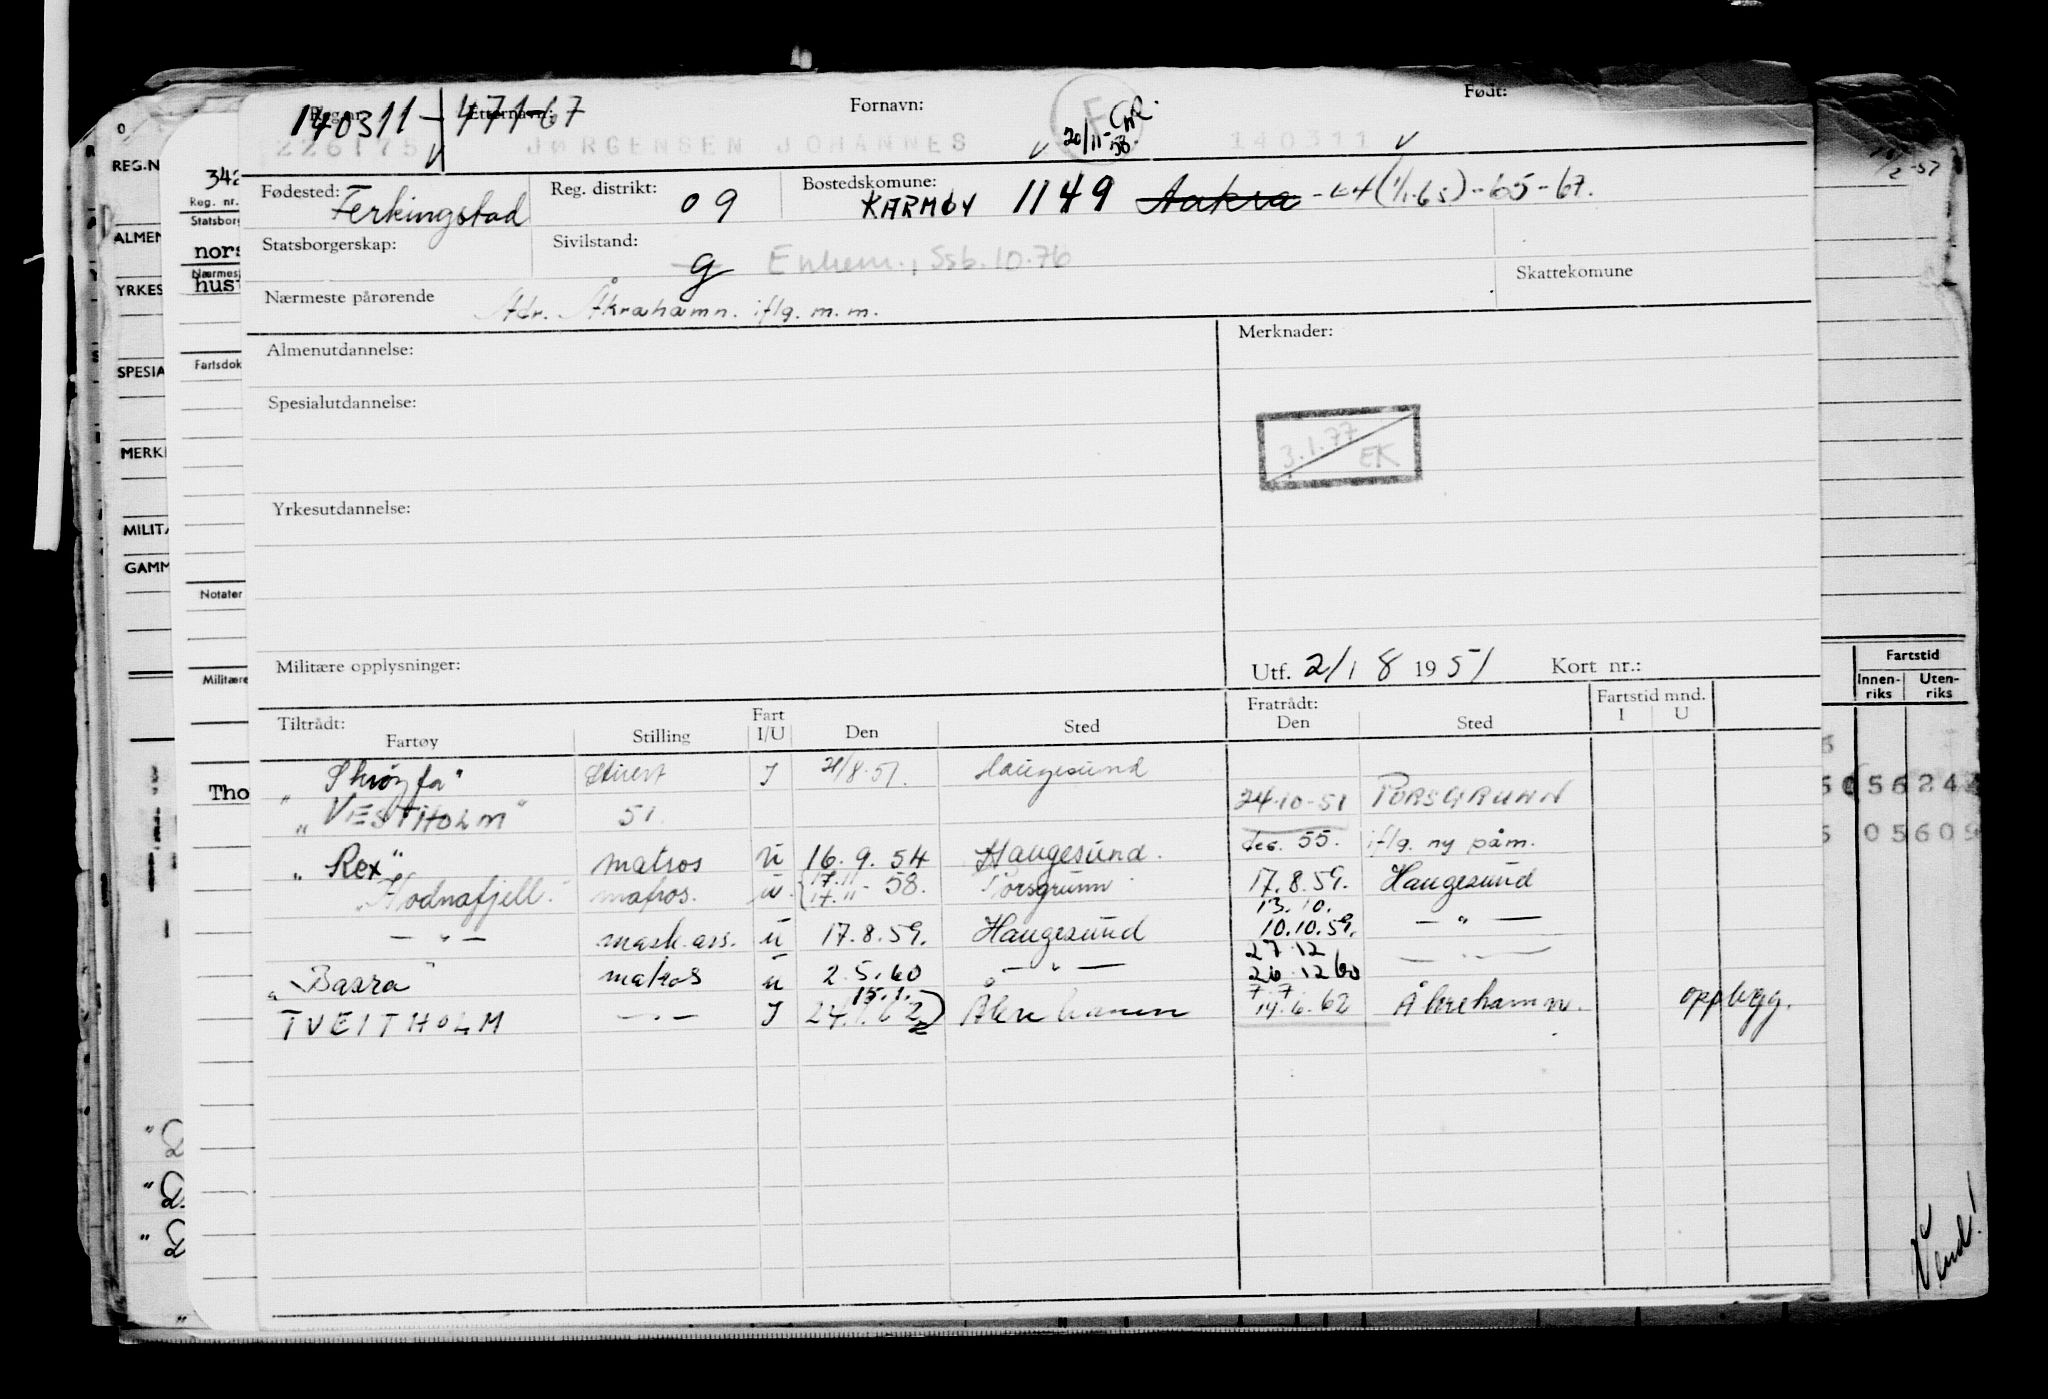 Reg.nr. Etternavn: Fornavn: Født:
140311 - 47167
226175 JØRGENSEN JOHANNES 20/11-58. F 140311
Fødested: Ferkingstad Reg. distrikt: 09 Bostedskomune: KARMØY 1149 Aakra -64 (1/1-65) -65-67.
Statsborgerskap: Sivilstand: g Enkem., Ssb. 10.76
Skattekomune
Nærmeste pårørende Adr. Åkrahamn. iflg. m.m.
Almenutdannelse: Merknader:
Spesialutdannelse:
3.1.77 EK
Yrkesutdannelse:
Militære opplysninger: Utf. 21/8 1951 Kort nr.:
Tiltrådt: Fartøy Stilling Fart I/U Den Sted Fratrådt: Den Sted Fartstid mnd. I U
I 21/8.51. Haugesund
"VESTHOLM" 51. 24.10-51 PORSGRUNN
"Rex" matros U 16.9.54 Haugesund. des. 55. iflg. ny påm.
"Hodnafjell" matros. U. 17.11 17.11- 58. Porsgrunn 17.8.59. Haugesund
— " — mask.ass. U 17.8.59. Haugesund 13.10. 10.10.59. — " —
"Basra" matros U 2.5.60 — " — 27.12 26.12 60 — " —
TVEITHOLM — " — I 15.1. 24.1.62 Åkrehamn 7.7. 14.6.62 Åkrehamn. opplegg.
REG.N
ALMEN
YRKES
SPESIA
MERK
MILITÆ
GAMM
342
Reg. nr.
Statsborg
nors
Nærmes
hust
Fartsdok
Notater
Militære
Tho
Fartstid
Innen-riks Uten-riks
5624
05609
Vend!